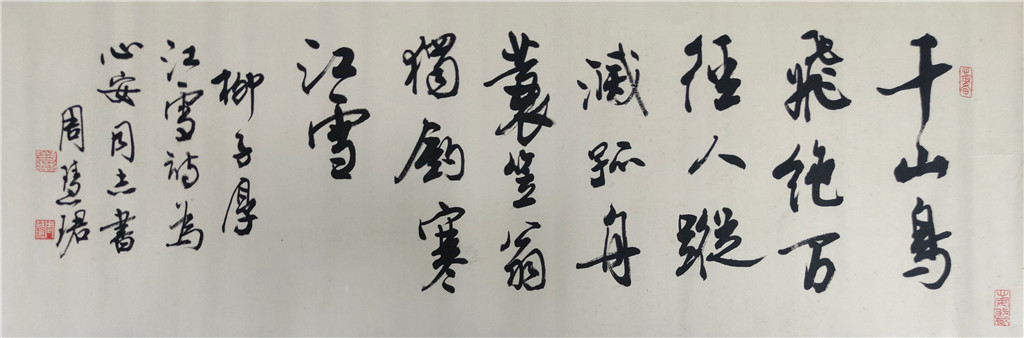 千山鳥
飛絶万
徑人蹤
滅孤舟
蓑笠翁
獨釣寒
江雪
柳子厚
江雪詩為
心安同志書
周慧珺